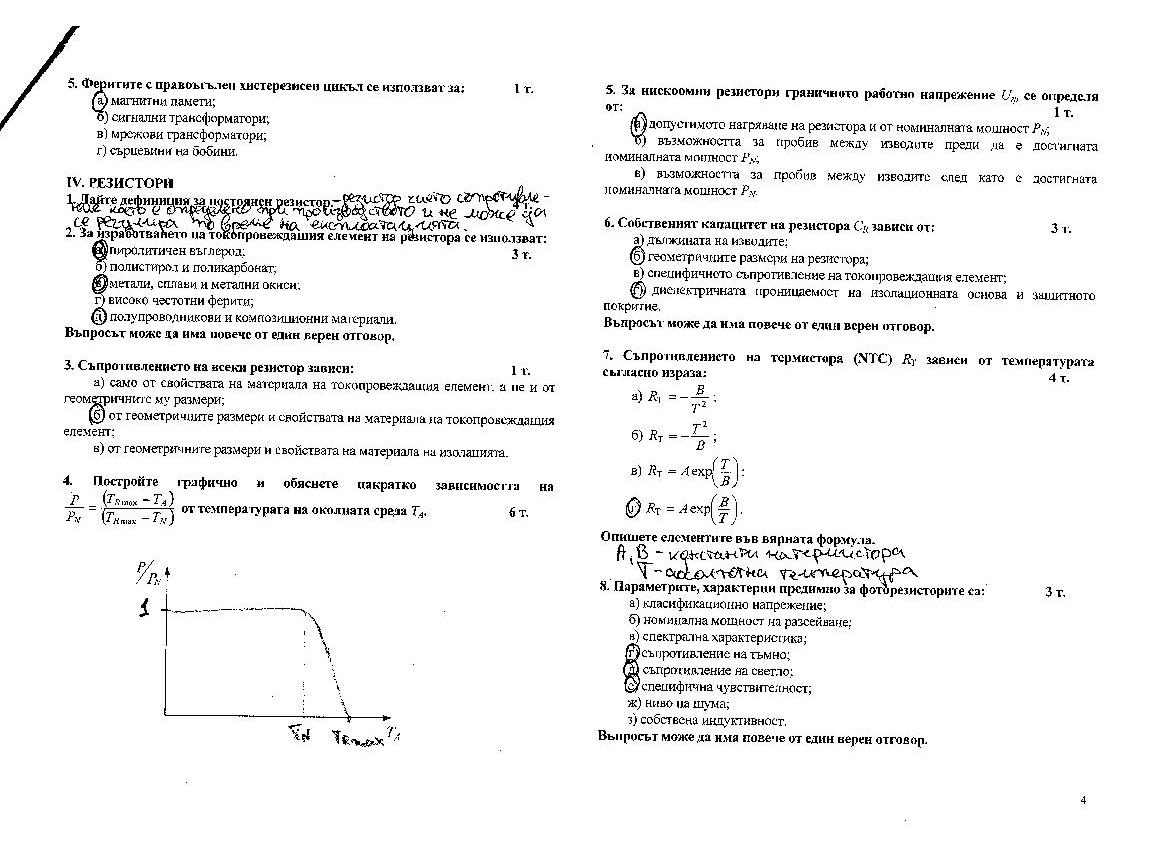 5. Феритите с правоъгълен хистерезисен цикъл се използват за: 1 т.
а) магнитни памети;
б) сигнални трансформатори;
в) мрежови трансформатори;
г) сърцевини на бобини.
IV. РЕЗИСТОРИ
1. Дайте дефиниция за постоянен резистор. – резистор чието съпротивле-
ние което е определено при производството и не може да
се регулира по време на експлоатацията.
2. За изработването на токопровеждащия елемент на резистора се използват:
а) пиролитичен въглерод; 3 т.
б) полистирол и поликарбонат;
в) метали, сплави и метални окиси;
г) високо честотни ферити;
д) полупроводникови и композиционни материали.
Въпросът може да има повече от един верен отговор.
3. Съпротивлението на всеки резистор зависи: 1 т.
а) само от свойствата на материала на токопровеждащия елемент, а не и от
геометричните му размери;
б) от геометричните размери и свойствата на материала на токопровеждащия
елемент;
в) от геометричните размери и свойствата на материала на изолацията.
4. Постройте графично и обяснете накратко зависимостта на
P/P_N = (T_Rmax − T_A)/(T_Rmax − T_N) от температурата на околната среда T_A. 6 т.
P/P_N
1
T_N T_Rmax T_A
5. За нискоомни резистори граничното работно напрежение U_гр се определя
от: 1 т.
а) допустимото нагряване на резистора и от номиналната мощност P_N;
б) възможността за пробив между изводите преди да е достигната
номиналната мощност P_N;
в) възможността за пробив между изводите след като е достигната
номиналната мощност P_N.
6. Собственият капацитет на резистора C_R зависи от: 3 т.
а) дължината на изводите;
б) геометричните размери на резистора;
в) специфичното съпротивление на токопровеждащия елемент;
г) диелектричната проницаемост на изолационната основа и защитното
покритие.
Въпросът може да има повече от един верен отговор.
7. Съпротивлението на термистора (NTC) R_T зависи от температурата
съгласно израза: 4 т.
а) R_T = −B/T²;
б) R_T = −T²/B;
в) R_T = A exp(T/B);
г) R_T = A exp(B/T).
Опишете елементите във вярната формула.
А, В – константи на термистора
Т – абсолютна температура
8. Параметрите, характерни предимно за фоторезисторите са: 3 т.
а) класификационно напрежение;
б) номинална мощност на разсейване;
в) спектрална характеристика;
г) съпротивление на тъмно;
д) съпротивление на светло;
е) специфична чувствителност;
ж) ниво на шума;
з) собствена индуктивност.
Въпросът може да има повече от един верен отговор.
4